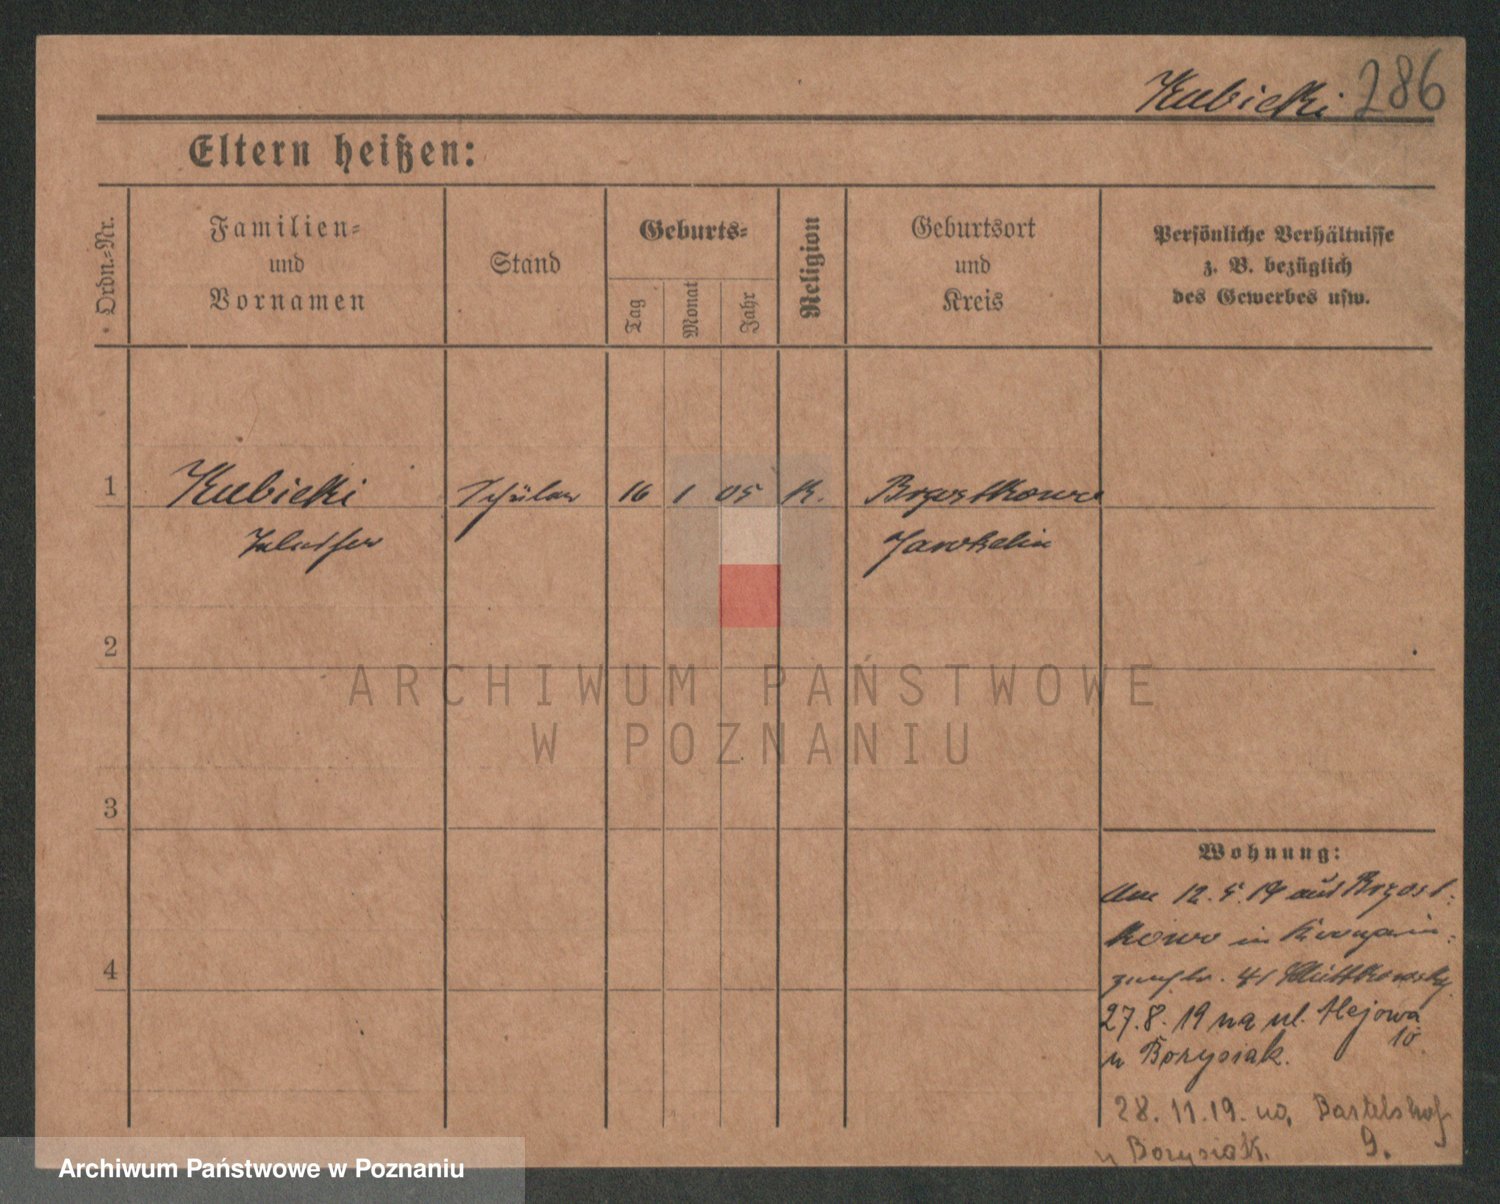 Kubicki 286
Eltern heißen:
Ordn.-Nr.
Familien-
und
Vornamen
Stand
Geburts-
Tag
Monat
Jahr
Religion
Geburtsort
und
Kreis
Persönliche Verhältnisse
z. B. bezüglich
des Gewerbes usw.
1 Kubicki Schüler 16 1 05 K. Brzostkowo
Jarotschin
2
3
4
ARCHIWUM PAŃSTWOWE
W POZNANIU
Wohnung:
Am 12.5.19 aus Brzost-
kowo in
41
27.8.19 na ul. Alejowa
10
u Borysiak.
28.11.19. na, Bartelshof
u Borysiak. 9.
Archiwum Państwowe w Poznaniu